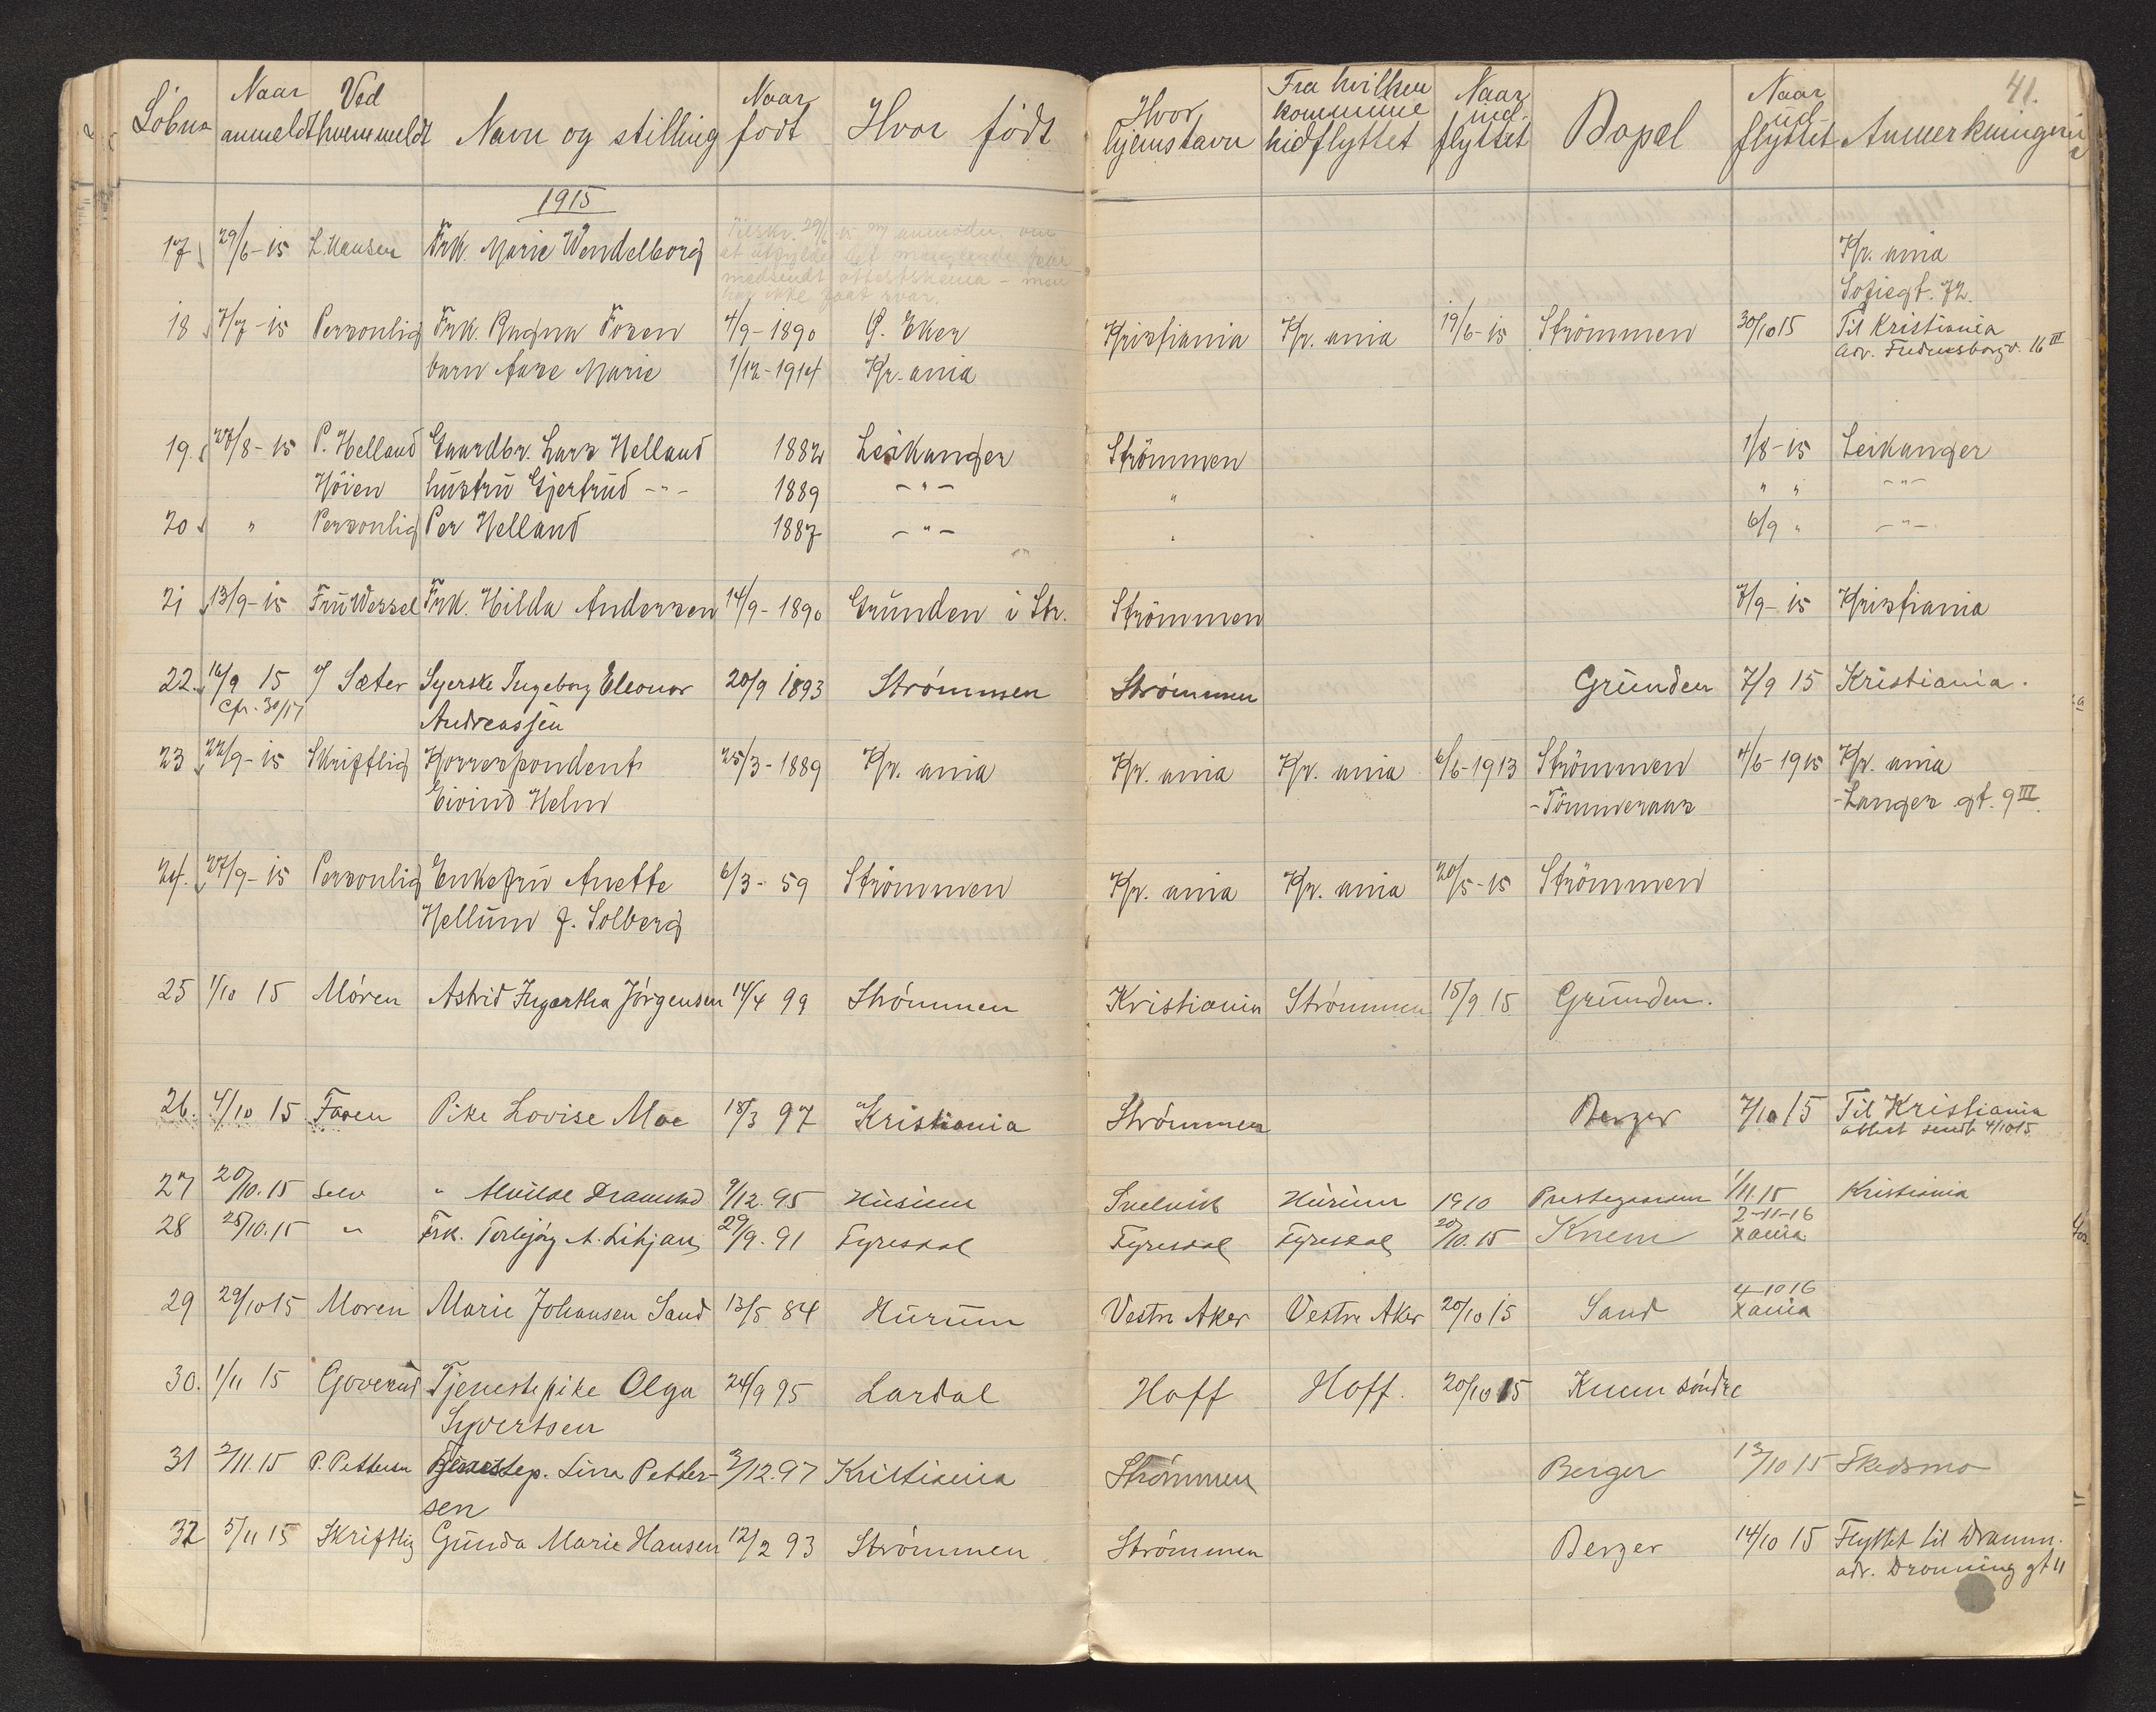 41.
Löbno Naar anmeldt Ved hvem meldt Navn og stilling Naar födt Hvor födt Hvor hjemstavn Fra hvilken kommune hidflyttet Naar ind- flyttet Bopæl Naar ud- flyttet Anmerkninger
1915
17 29/6-15 L. Hansen Frk. Marie Wendelborg Kr. ania
Sofiegt. 72.
18 7/7-15 Personlig Frk. Ragna Foren 4/9-1890 Ö. Eker Kristiania Kr. ania 19/6-15 Strömmen 30/10 15 Til Kristiania
adr. Fredensborgv. 16 III
barn Aase Marie 1/12-1914 Kr. ania
19. 27/8-15 P. Helland Gaardbr. Lars Helland 1882 Leikanger Strömmen 1/8-15 Leikanger
Höien hustru Gjertrud -"- 1889 -"- " " " -"-
20 " Personlig Per Helland 1887 -"- " 6/9 " -"-
21 13/9-15 Fru Wessel Frk. Hilda Andersen 14/9-1890 Grunden i Str. Strömmen 7/9-15 Kristiania
22. 16/9 15 v/ Sæter Syerske Ingeborg Eleonor 20/9 1893 Strömmen Strömmen Grunden 7/9 15 Kristiania.
cfr. 30/17 Andreassen
23 22/9-15 Skriftlig Korrespondent 25/3-1889 Kr. ania Kr. ania Kr. ania 6/6-1913 Strömmen 4/6-1915 Kr. ania
Eivind Helm -Tömmeraas -Langes gt. 9 III
24. 27/9-15 Personlig Enkefru Anette 6/3-59 Strömmen Kr. ania Kr. ania 20/5-15 Strömmen
Hellum f. Solberg
25 1/10 15 Móren Astrid Ingertha Jörgensen 14/4 99 Strömmen Kristiania Strömmen 15/9 15 Grunden.
26. 4/10 15 Faren Pike Lovise Moe 18/3 97 Kristiania Strömmen Berger 7/10 15 Til Kristiania
attest sendt 4/10 15
27 20/10.15 Selv " Alvilde Dramstad 9/12.95 Hurum Svelvik Hurum 1910 Prestegaarden 1/11.15 Kristiania
28 25/10.15 " Frk. Torbjörg A. Lihjan 29/9.91 Fyresdal Fyresdal Fyresdal 20/10.15 Knem 2-11-16
Xania
29 29/10 15 Moren Marie Johansen Sand 13/5 84 Hurum Vestre Aker Vestre Aker 20/10 15 Sand 4-10 16
Xania
30. 1/11 15 Goverud Tjenestepike Olga 24/9 95 Lardal Hoff Hoff. 20/10 15 Knem söndre
Syvertsen
31 2/11.15 P. Pettersen Tjenestep. Lina Petter- 3/12.97 Kristiania Strömmen Berger 13/10 15 Skedsmo
sen
32 5/11 15 Skriftlig Gunda Marie Hansen 12/2 93 Strömmen Strömmen Berger 14/10 15 Flyttet til Dramm.
adr. Dronning gt 11